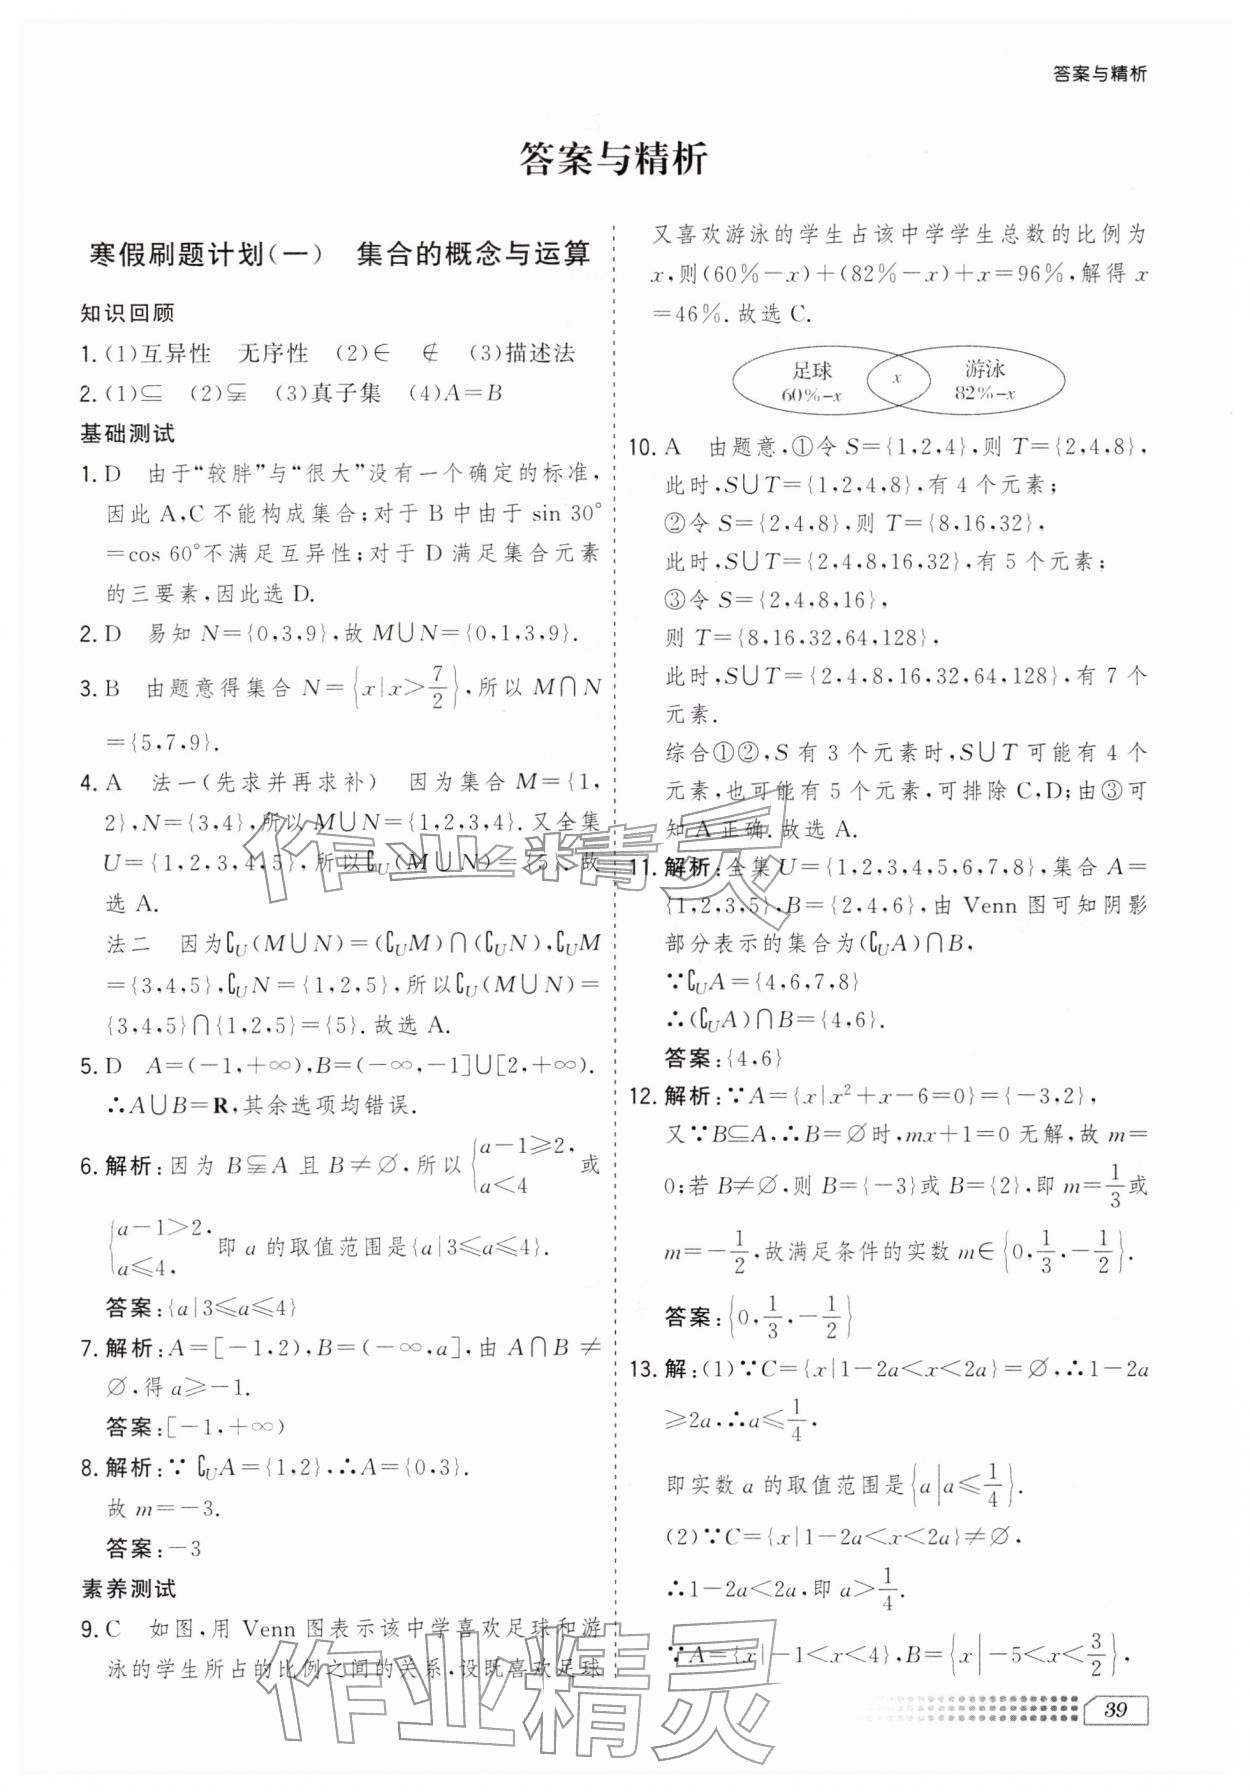 答案与精析
答案与精析
寒假刷题计划(一)　集合的概念与运算
知识回顾
1. (1)互异性　无序性　(2)∈　∉　(3)描述法
2. (1)⊆　(2)⫋　(3)真子集　(4)A=B
基础测试
1. D　由于“较胖”与“很大”没有一个确定的标准,
因此 A,C 不能构成集合;对于 B 中由于 sin 30°
=cos 60°不满足互异性;对于 D 满足集合元素
的三要素,因此选 D.
2. D　易知 N={0,3,9},故 M∪N={0,1,3,9}.
3. B　由题意得集合 N={x|x>7/2},所以 M∩N
={5,7,9}.
4. A　法一(先求并再求补)　因为集合 M={1,
2},N={3,4},所以 M∪N={1,2,3,4}.又全集
U={1,2,3,4,5},所以∁U(M∪N)={5}.故
选 A.
法二　因为∁U(M∪N)=(∁UM)∩(∁UN),∁UM
={3,4,5},∁UN={1,2,5},所以∁U(M∪N)=
{3,4,5}∩{1,2,5}={5}.故选 A.
5. D　A=(-1,+∞),B=(-∞,-1]∪[2,+∞).
∴A∪B=R,其余选项均错误.
6. 解析:因为 B⫋A 且 B≠∅,所以{a-1≥2,a<4 或
{a-1>2,a≤4,即 a 的取值范围是{a|3≤a≤4}.
答案:{a|3≤a≤4}
7. 解析:A=[-1,2),B=(-∞,a],由 A∩B≠
∅,得 a≥-1.
答案:[-1,+∞)
8. 解析:∵ ∁UA={1,2},∴A={0,3}.
故 m=-3.
答案:-3
素养测试
9. C　如图,用 Venn 图表示该中学喜欢足球和游
泳的学生所占的比例之间的关系,设既喜欢足球
又喜欢游泳的学生占该中学学生总数的比例为
x,则(60%-x)+(82%-x)+x=96%,解得 x
=46%.故选 C.
足球　x　游泳
60%-x　82%-x
10. A　由题意,①令 S={1,2,4},则 T={2,4,8},
此时,S∪T={1,2,4,8},有 4 个元素;
②令 S={2,4,8},则 T={8,16,32},
此时,S∪T={2,4,8,16,32},有 5 个元素;
③令 S={2,4,8,16},
则 T={8,16,32,64,128},
此时,S∪T={2,4,8,16,32,64,128},有 7 个
元素.
综合①②,S 有 3 个元素时,S∪T 可能有 4 个
元素,也可能有 5 个元素,可排除 C,D;由③可
知 A 正确.故选 A.
11. 解析:全集 U={1,2,3,4,5,6,7,8},集合 A=
{1,2,3,5},B={2,4,6},由 Venn 图可知阴影
部分表示的集合为(∁UA)∩B,
∵∁UA={4,6,7,8}
∴(∁UA)∩B={4,6}.
答案:{4,6}
12. 解析:∵A={x|x²+x-6=0}={-3,2},
又∵B⊆A,∴B=∅时,mx+1=0 无解,故 m=
0;若 B≠∅,则 B={-3}或 B={2},即 m=1/3或
m=-1/2,故满足条件的实数 m∈{0,1/3,-1/2}.
答案:{0,1/3,-1/2}
13. 解:(1)∵C={x|1-2a<x<2a}=∅,∴1-2a
≥2a,∴a≤1/4,
即实数 a 的取值范围是{a|a≤1/4}.
(2)∵C={x|1-2a<x<2a}≠∅,
∴1-2a<2a,即 a>1/4.
∵A={x|-1<x<4},B={x|-5<x<3/2},
39
作业精灵
作业精灵